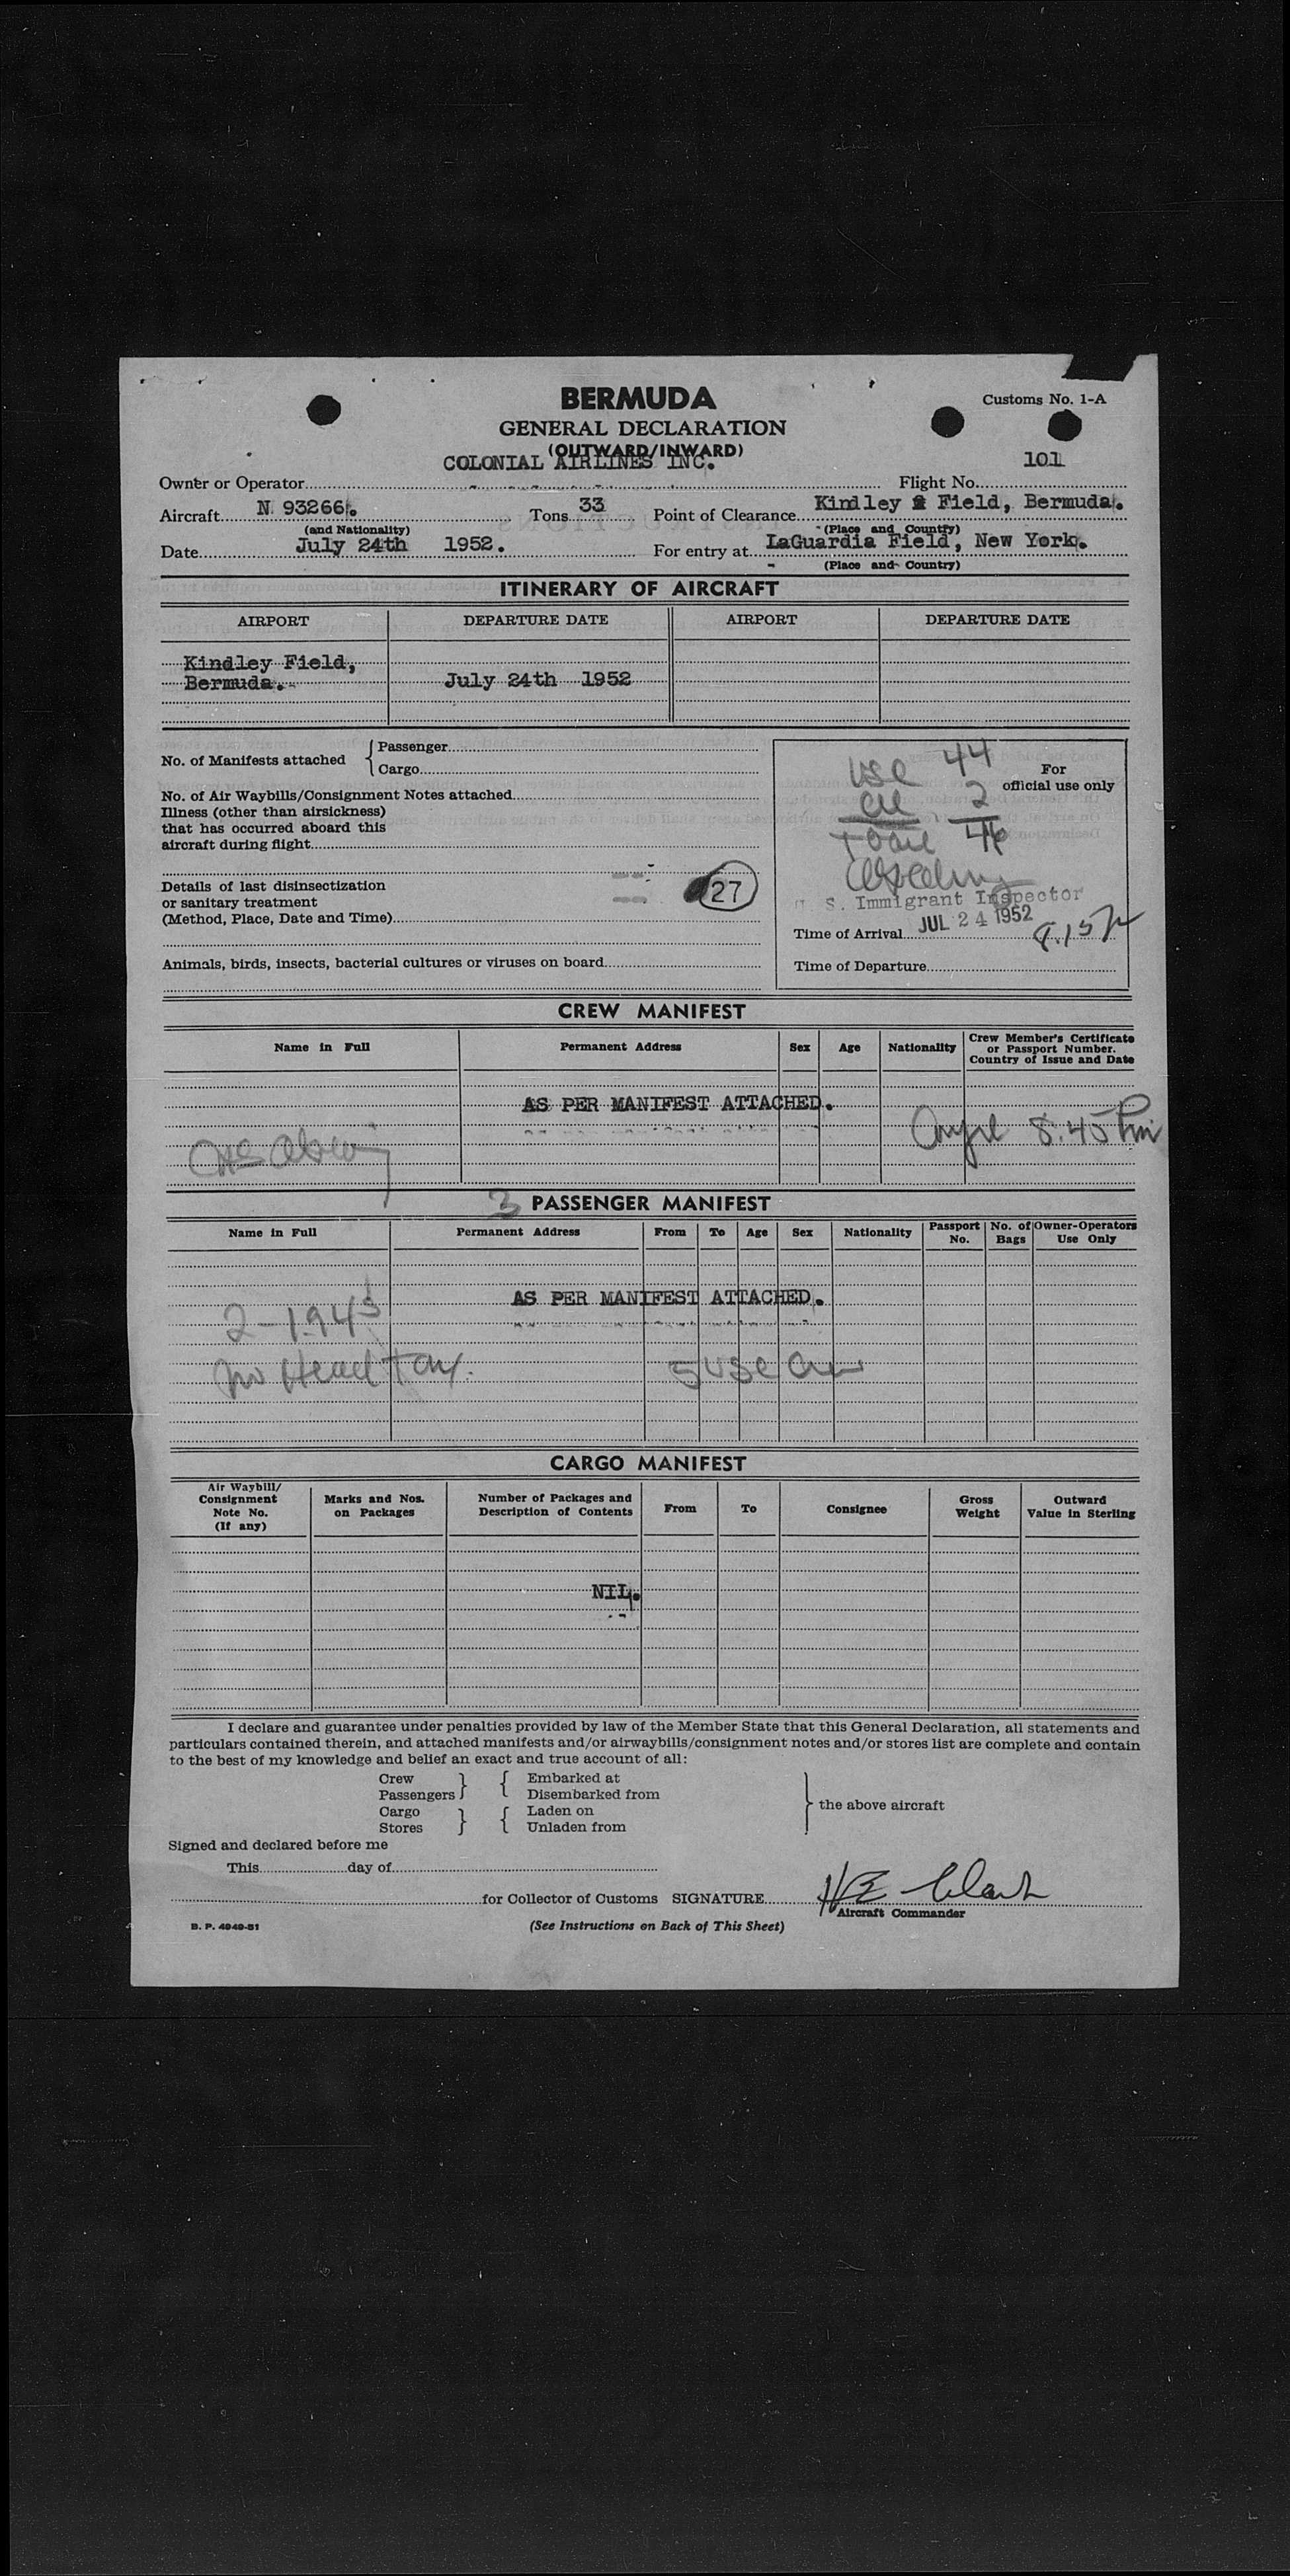 BERMUDA
Customs No. 1-A
GENERAL DECLARATION
(OUTWARD/INWARD)
COLONIAL AIRLINES INC.
101
Owner or Operator
Flight No.
Aircraft N 93266. Tons 33 Point of Clearance Kindley Field, Bermuda.
(and Nationality) (Place and Country)
Date July 24th 1952. For entry at LaGuardia Field, New York.
(Place and Country)
ITINERARY OF AIRCRAFT
AIRPORT DEPARTURE DATE AIRPORT DEPARTURE DATE
Kindley Field,
Bermuda. July 24th 1952
No. of Manifests attached { Passenger
Cargo
No. of Air Waybills/Consignment Notes attached
Illness (other than airsickness)
that has occurred aboard this
aircraft during flight
Details of last disinsectization
or sanitary treatment
(Method, Place, Date and Time)
27
Animals, birds, insects, bacterial cultures or viruses on board
For
official use only
USC 44
2
Total 46
U. S. Immigrant Inspector
Time of Arrival JUL 24 1952 8.15
Time of Departure
CREW MANIFEST
Name in Full Permanent Address Sex Age Nationality Crew Member's Certificate
or Passport Number.
Country of Issue and Date
AS PER MANIFEST ATTACHED.
8:45 Pm
3 PASSENGER MANIFEST
Name in Full Permanent Address From To Age Sex Nationality Passport No. No. of Bags Owner-Operators Use Only
AS PER MANIFEST ATTACHED.
2-I94s
no Head Tax.
5 USC
CARGO MANIFEST
Air Waybill/
Consignment
Note No.
(If any)
Marks and Nos.
on Packages
Number of Packages and
Description of Contents
From
To
Consignee
Gross
Weight
Outward
Value in Sterling
NIL.
I declare and guarantee under penalties provided by law of the Member State that this General Declaration, all statements and
particulars contained therein, and attached manifests and/or airwaybills/consignment notes and/or stores list are complete and contain
to the best of my knowledge and belief an exact and true account of all:
Crew } { Embarked at
Passengers } { Disembarked from
Cargo } { Laden on
Stores } { Unladen from
} the above aircraft
Signed and declared before me
This day of
for Collector of Customs SIGNATURE H E Clark
Aircraft Commander
B. P. 4949-51
(See Instructions on Back of This Sheet)